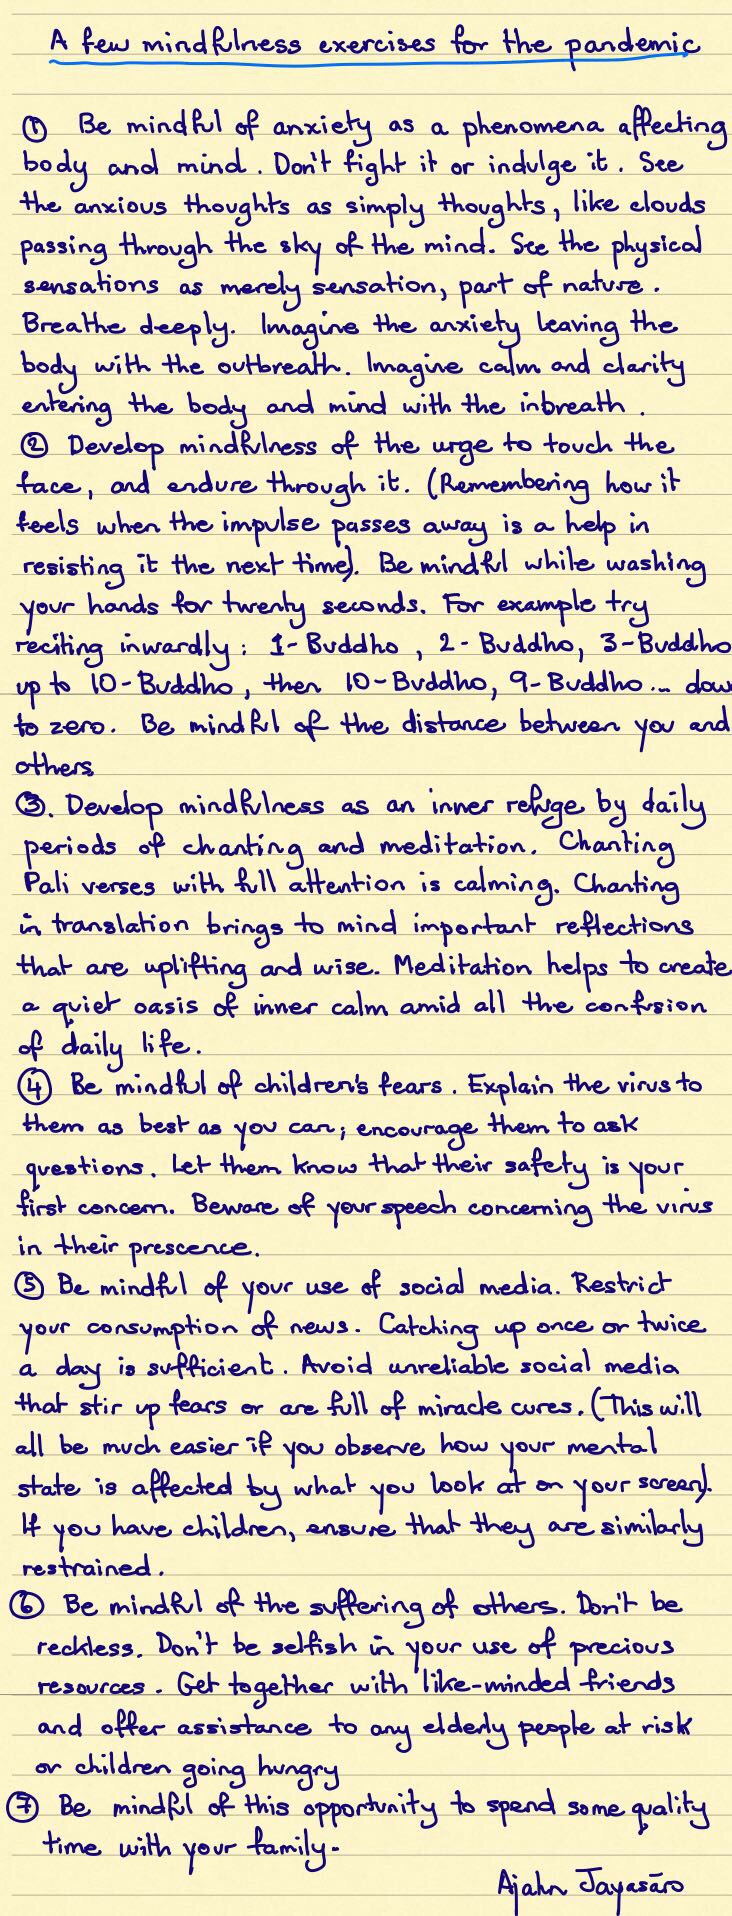 A few mindfulness exercises for the pandemic
① Be mindful of anxiety as a phenomena affecting
body and mind. Don't fight it or indulge it. See
the anxious thoughts as simply thoughts, like clouds
passing through the sky of the mind. See the physical
sensations as merely sensation, part of nature.
Breathe deeply. Imagine the anxiety leaving the
body with the outbreath. Imagine calm and clarity
entering the body and mind with the inbreath.
② Develop mindfulness of the urge to touch the
face, and endure through it. (Remembering how it
feels when the impulse passes away is a help in
resisting it the next time). Be mindful while washing
your hands for twenty seconds. For example try
reciting inwardly: 1-Buddho, 2-Buddho, 3-Buddho
up to 10-Buddho, then 10-Buddho, 9-Buddho... dow
to zero. Be mindful of the distance between you and
others
③. Develop mindfulness as an inner refuge by daily
periods of chanting and meditation. Chanting
Pali verses with full attention is calming. Chanting
in translation brings to mind important reflections
that are uplifting and wise. Meditation helps to create
a quiet oasis of inner calm amid all the confusion
of daily life.
④ Be mindful of children's fears. Explain the virus to
them as best as you can; encourage them to ask
questions. Let them know that their safety is your
first concern. Beware of your speech concerning the virus
in their prescence.
⑤ Be mindful of your use of social media. Restrict
your consumption of news. Catching up once or twice
a day is sufficient. Avoid unreliable social media
that stir up fears or are full of miracle cures. (This will
all be much easier if you observe how your mental
state is affected by what you look at on your screen).
If you have children, ensure that they are similarly
restrained.
⑥ Be mindful of the suffering of others. Don't be
reckless. Don't be selfish in your use of precious
resources. Get together with like-minded friends
and offer assistance to any elderly people at risk
or children going hungry
⑦ Be mindful of this opportunity to spend some quality
time with your family.
Ajahn Jayasāro